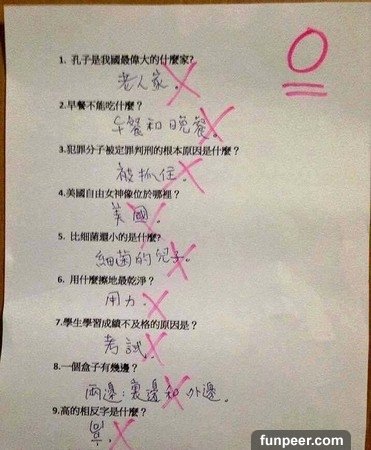 0
1. 孔子是我國最偉大的什麼家?
老人家。
2.早餐不能吃什麼？
午餐和晚餐。
3.犯罪分子被定罪判刑的根本原因是什麼？
被抓住。
4.美國自由女神像位於哪裡？
美國。
5. 比細菌還小的是什麼?
細菌的兒子。
6. 用什麼擦地最乾淨？
用力.
7.學生學習成績不及格的原因是？
考試.
8.一個盒子有幾邊？
兩邊：裏邊和外邊.
9.高的相反字是什麼？
funpeer.com